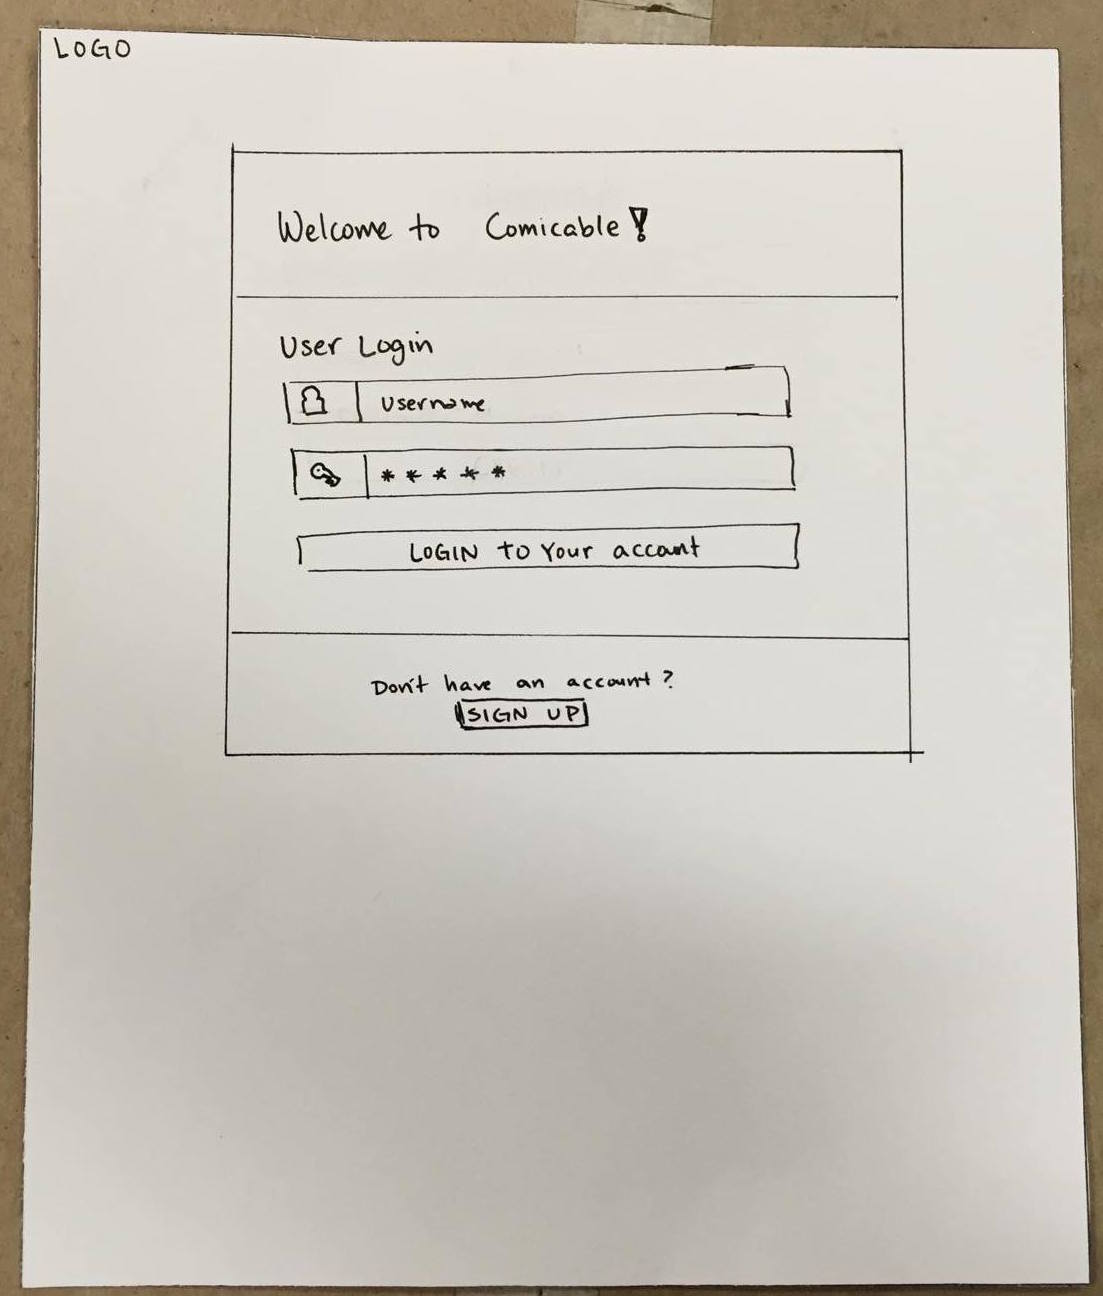 LOGO
Welcome to Comicable!
User Login
Username
* * * * *
LOGIN to Your account
Don't have an account?
SIGN UP